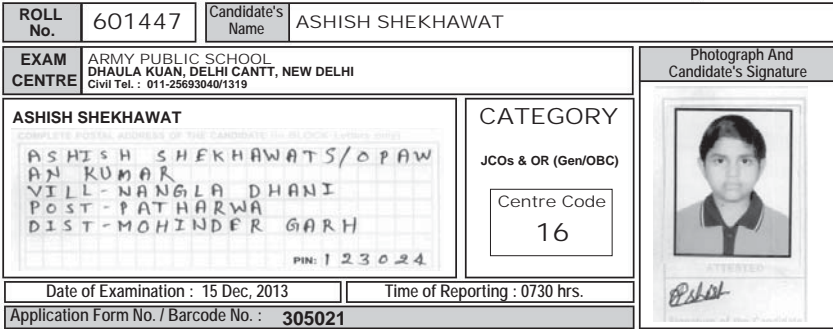 ROLL No. 601447 Candidate's Name ASHISH SHEKHAWAT
EXAM CENTRE
ARMY PUBLIC SCHOOL
DHAULA KUAN, DELHI CANTT, NEW DELHI
Civil Tel. : 011-25693040/1319
Photograph And
Candidate's Signature
ASHISH SHEKHAWAT
COMPLETE POSTAL ADDRESS OF THE CANDIDATE (in BLOCK Letters only)
ASHISH SHEKHAWAT S/O PAW
AN KUMAR
VILL-NANGLA DHANI
POST-PATHARWA
DIST-MOHINDER GARH
PIN: 123024
CATEGORY
JCOs & OR (Gen/OBC)
Centre Code
16
ATTESTED
Signature of the Candidate
Date of Examination : 15 Dec, 2013
Time of Reporting : 0730 hrs.
Application Form No. / Barcode No. : 305021